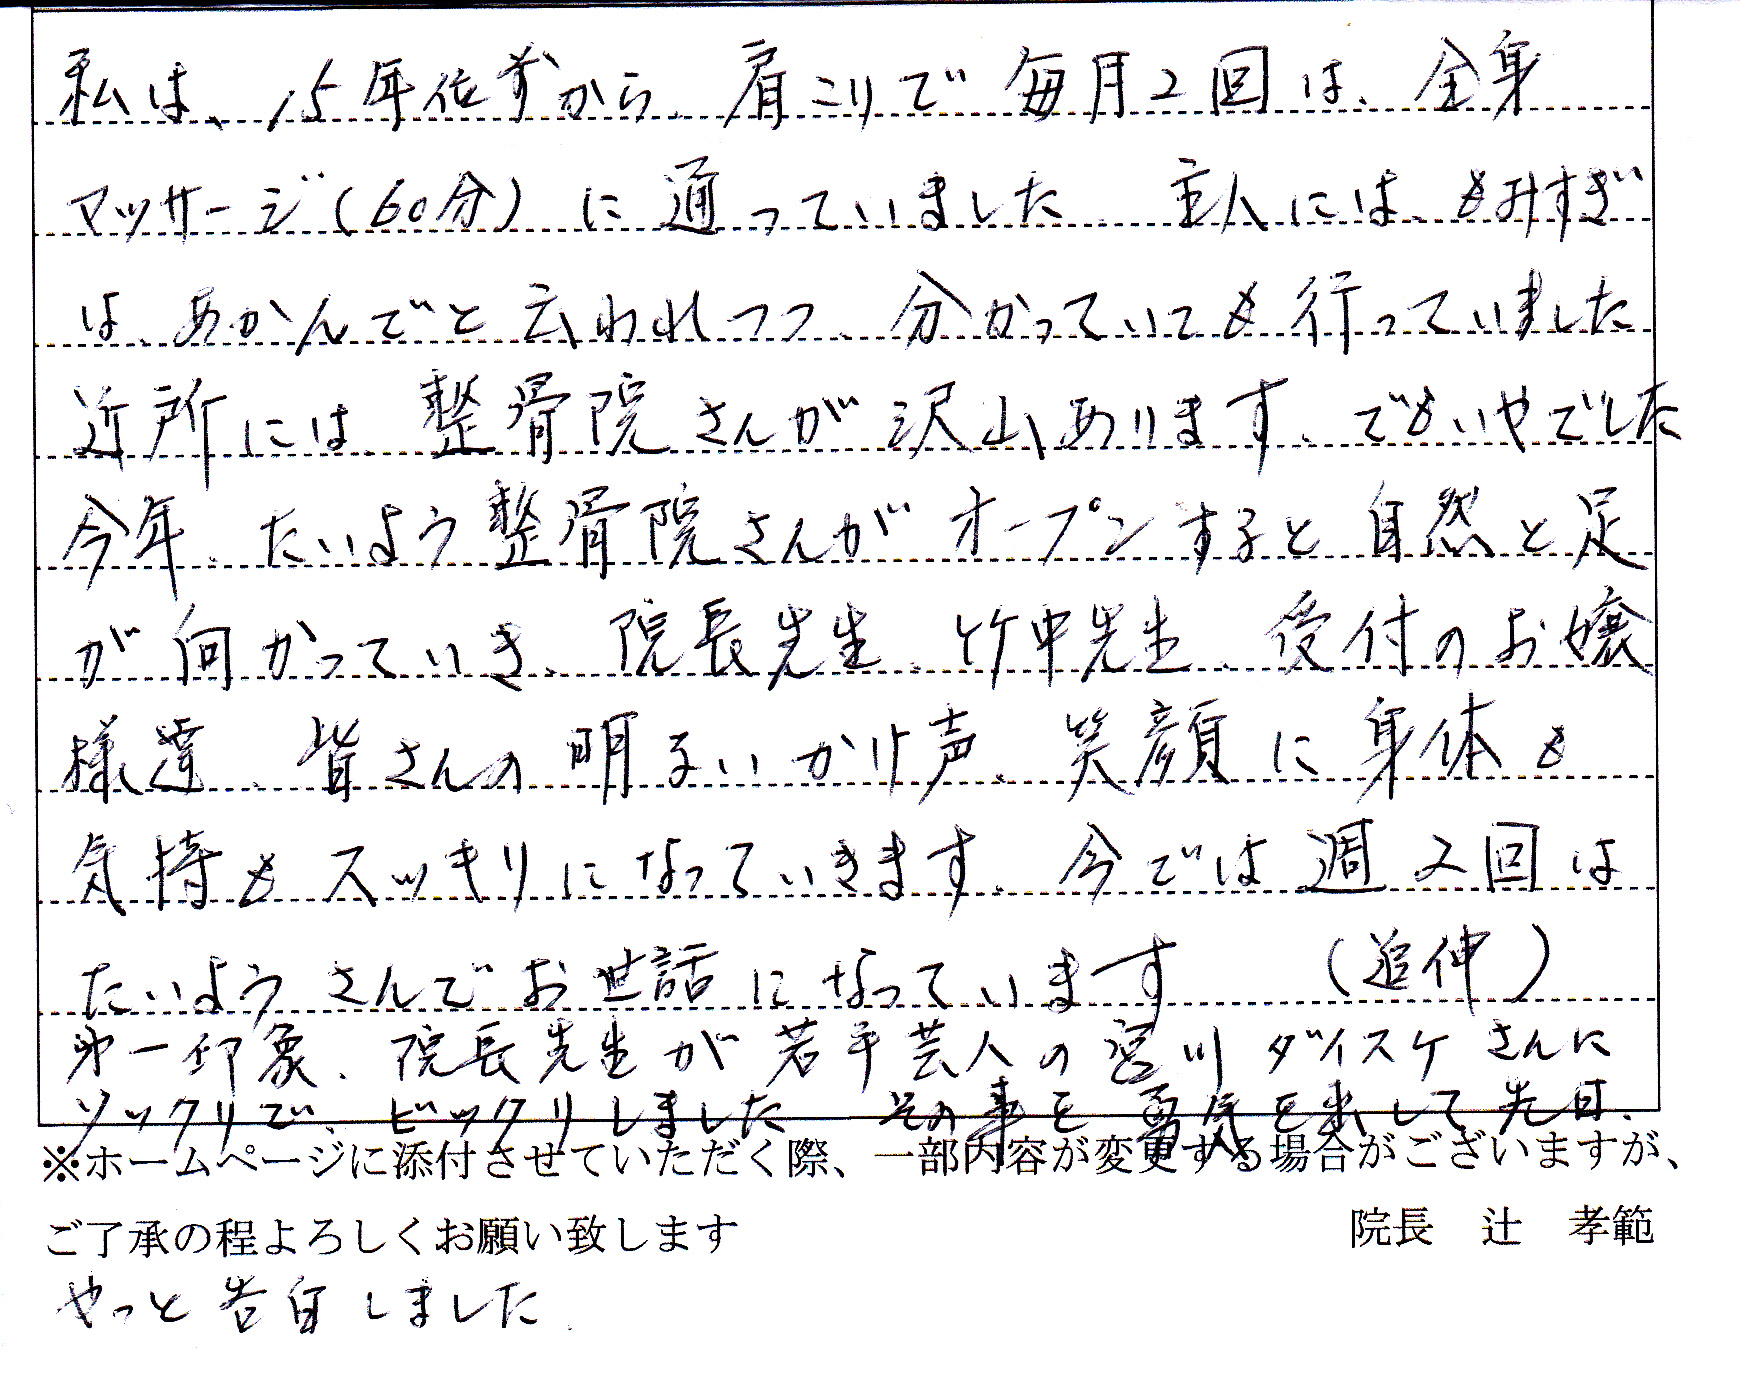 私は、15年位前から、肩こりで毎月2回は、全身
マッサージ(60分)に通っていました。主人には、もみすぎ
は、あかんでと云われつつ、分かっていても行っていました
近所には、整骨院さんが沢山あります、でもいやでした
今年、たいよう整骨院さんがオープンすると自然と足
が向かっていき、院長先生、竹中先生、受付のお嬢
様達、皆さんの明るいかけ声、笑顔に身体も
気持もスッキリになっていきます。今では週2回は
たいようさんでお世話になっています (追伸)
第一印象、院長先生が若手芸人の宮川ダイスケさんに
ソックリで、ビックリしました その事を勇気を出して先日、
※ホームページに添付させていただく際、一部内容が変更する場合がございますが、
ご了承の程よろしくお願い致します 院長 辻 孝範
やっと告白しました。